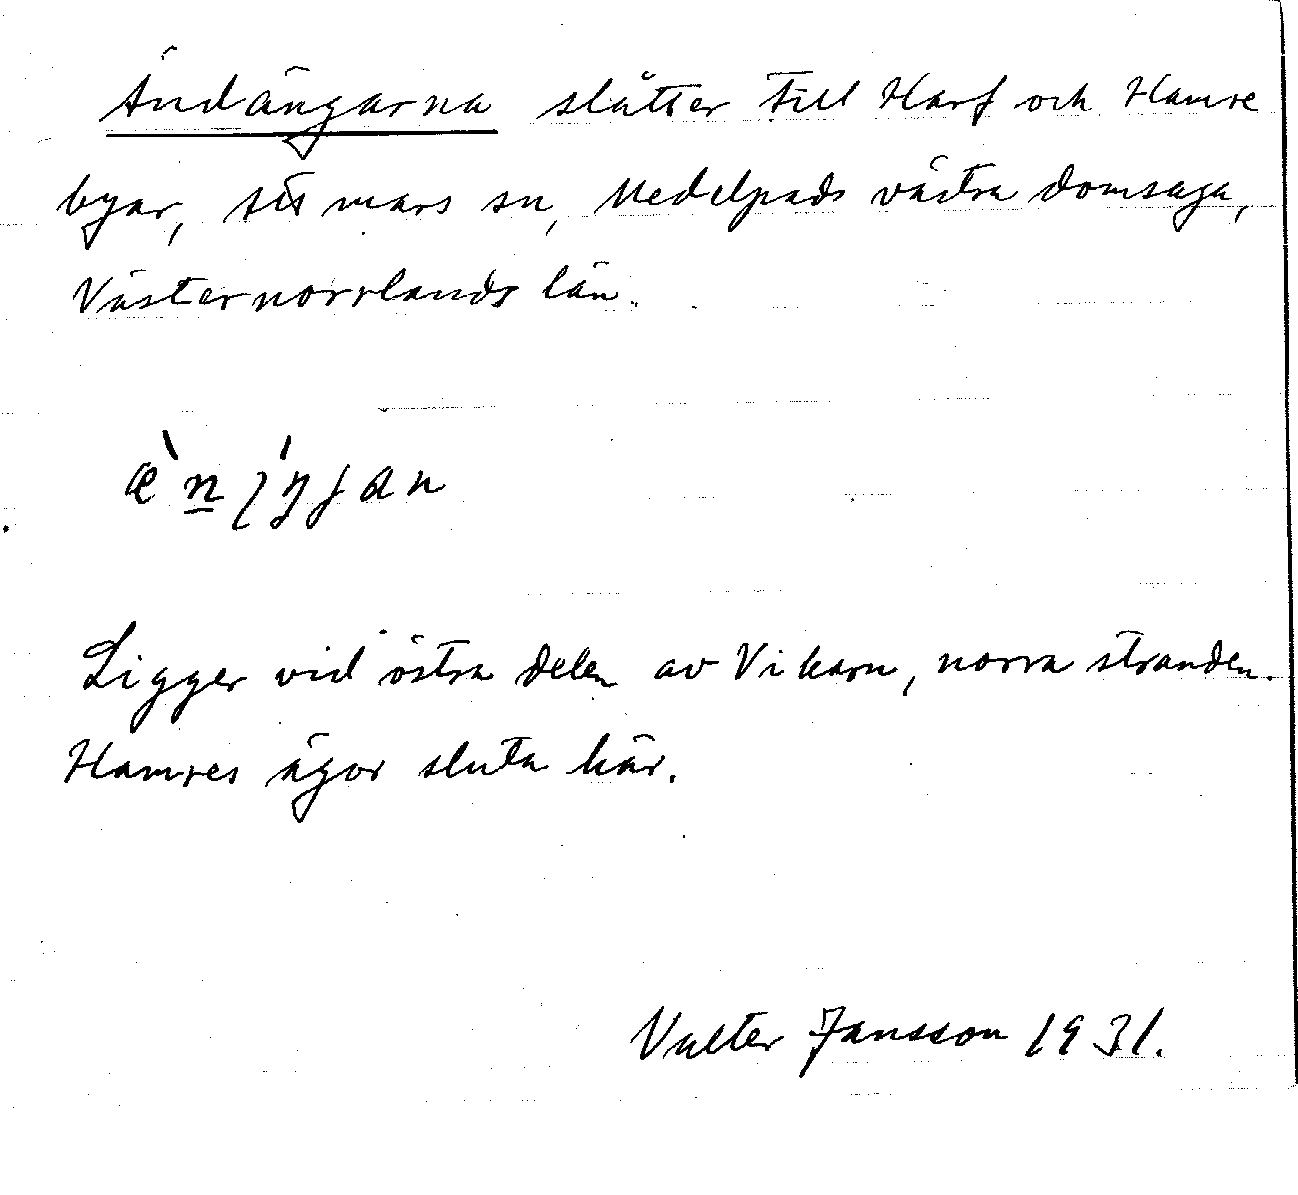 Ändängarna slåtter till Harf och Hamre
byar, Attmars sn, Medelpads västra domsaga,
Västernorrlands län.
Ligger vid östra delen av Vikarn, norra stranden.
Hamres ägor sluta här.
Valter Jansson 1931.